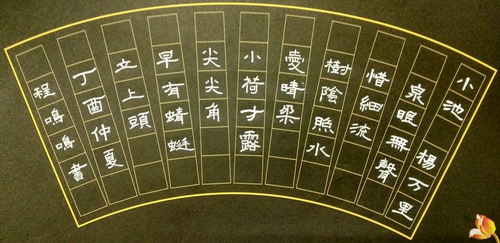 小池 楊万里
泉眼無聲
惜細流
樹陰照水
愛晴柔
小荷才露
尖尖角
早有蜻蜓
立上頭
丁酉仲夏
程鳴鳴書